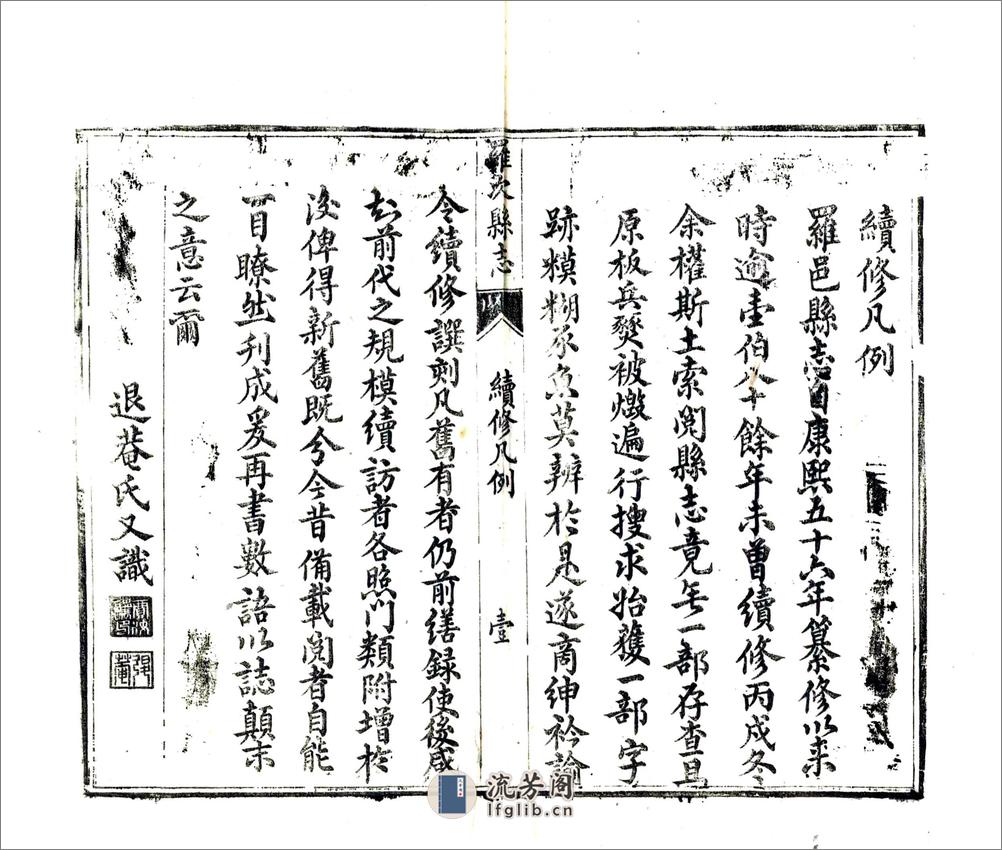 續修凡例
羅邑縣志自康熙五十六年纂修以来
時逾壹伯八十餘年未曾續修丙戍冬
余權斯土索閱縣志竟無一部存查且
原板兵燹被燬遍行搜求始獲一部字
跡糢糊豕魚莫辨於是遂商紳衿諭
羅次縣志
續修凡例
壹
令續修譔刻凡舊有者仍前繕録使後咸
知前代之規模續訪者各照門類附增於
後俾得新舊既分今昔備載閱者自能
一目瞭然刋成爰再書數語以誌顛末
之意云爾
退菴氏又識
流芳阁
lfglib.cn